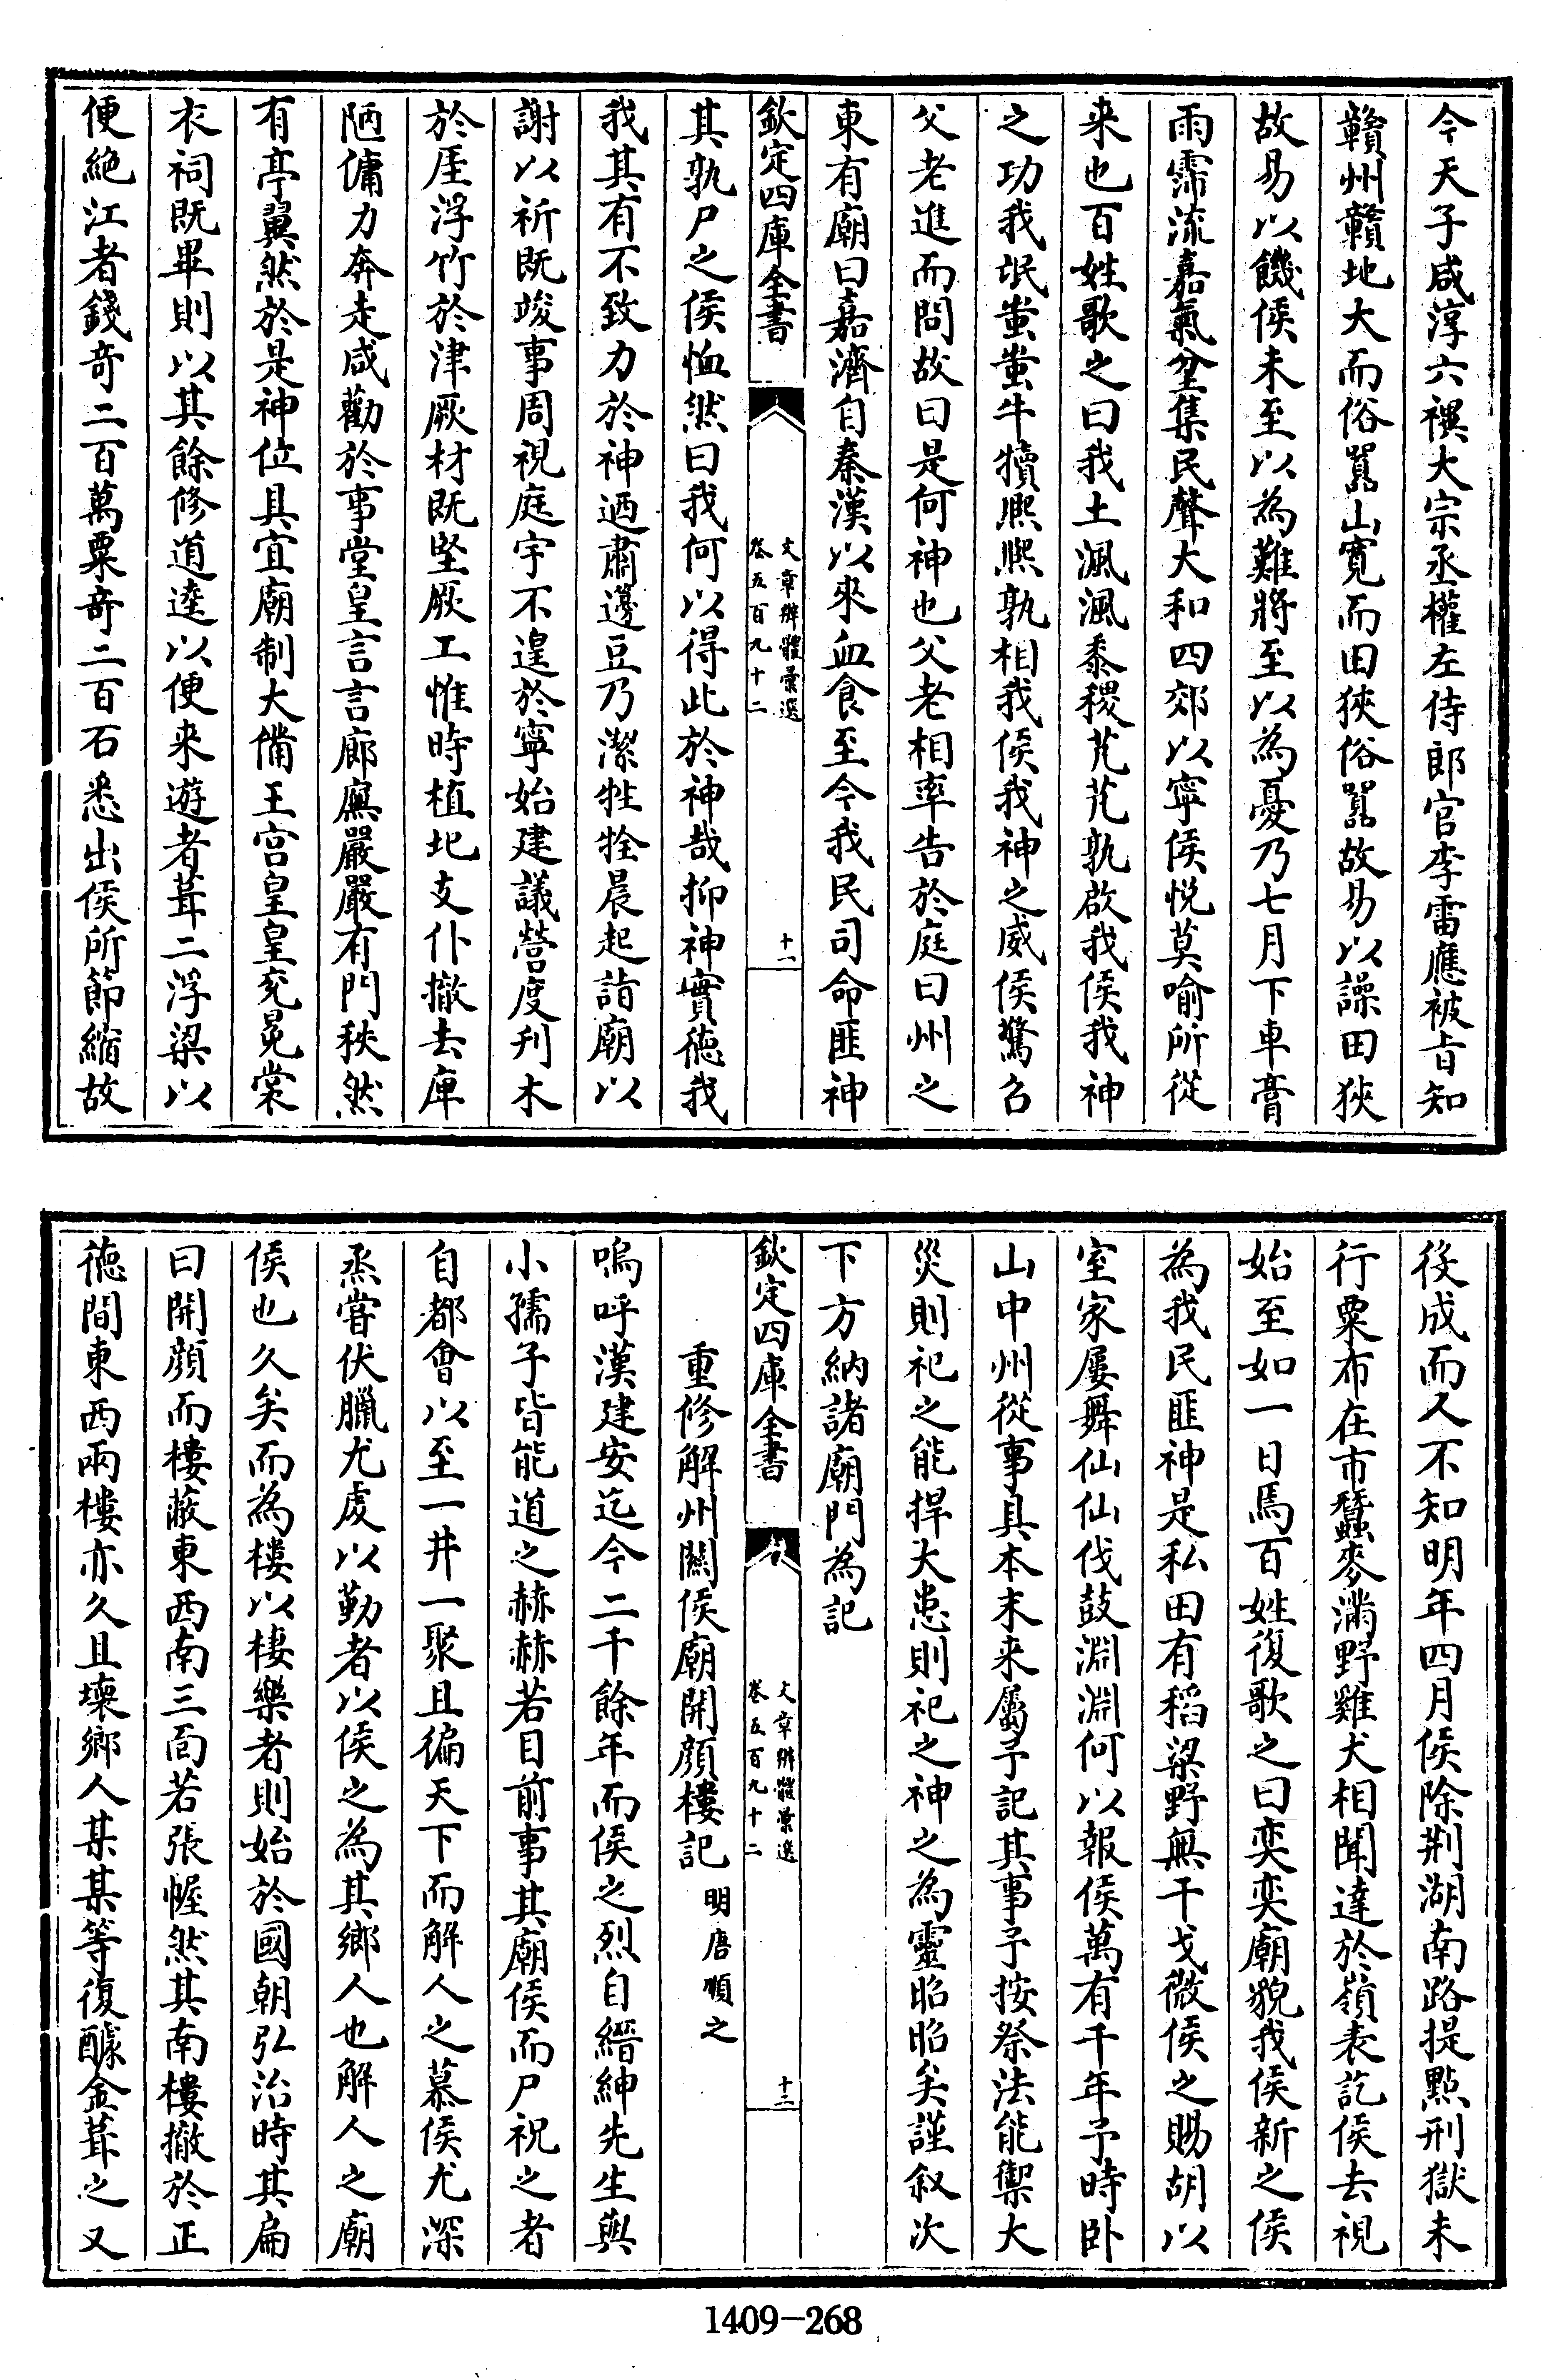 今天子咸淳六禩大宗丞權左侍郎官李雷應被旨知
贛州贛地大而俗嚚山寛而田狹俗嚚故易以譟田狹
故易以饑侯未至以為難將至以為憂乃七月下車膏
雨霈流嘉氣坌集民聲大和四郊以寜侯悦莫喻所從
来也百姓歌之曰我土渢渢黍稷芃芃孰啟我侯我神
之功我氓蚩蚩牛犢熈熈孰相我侯我神之威侯驚召
父老進而問故曰是何神也父老相率告於庭曰州之
東有廟曰嘉濟自秦漢以來血食至今我民司命匪神
欽定四庫全書
文章辨體彚選
卷五百九十二
十一
其孰尸之侯恤然曰我何以得此於神哉抑神實徳我
我其有不致力於神迺肅籩豆乃潔牲牷晨起詣廟以
謝以祈既竣事周視庭宇不遑於寧始建議營度刋木
於厓浮竹於津厥材既堅厥工惟時植圯支仆撤去庳
陋傭力奔走咸勸於事堂皇言言廊廡嚴嚴有門秩然
有亭翼然於是神位具宜廟制大備王宫皇皇兖冕裳
衣祠既畢則以其餘修道逵以便来遊者葺二浮梁以
便絶江者錢竒二百萬粟竒二百石悉出侯所節縮故
後成而人不知明年四月侯除荆湖南路提㸃刑獄未
行粟布在市蠶麥滿野雞犬相聞達於嶺表訖侯去視
始至如一日焉百姓復歌之曰奕奕廟貌我侯新之侯
為我民匪神是私田有稻粱野無干戈微侯之賜胡以
室家屢舞仙仙伐鼓淵淵何以報侯萬有千年予時卧
山中州從事具本末来屬予記其事予按祭法能禦大
災則祀之能捍大患則祀之神之為靈昭昭矣謹叙次
下方納諸廟門為記
欽定四庫全書
文章辨體彚選
卷五百九十二
十二
重修解州闗侯廟開顔樓記 明唐順之
嗚呼漢建安迄今二千餘年而侯之烈自縉紳先生與
小孺子皆能道之赫赫若目前事其廟侯而尸祝之者
自都會以至一井一聚且徧天下而解人之慕侯尤深
烝嘗伏臘尤䖍以勤者以侯之為其鄉人也解人之廟
侯也久矣而為樓以棲樂者則始於國朝弘治時其扁
曰開顔而樓蔽東西南三面若張幄然其南樓撤於正
徳間東西兩樓亦久且壞鄉人某某等復醵金葺之又
1409-268